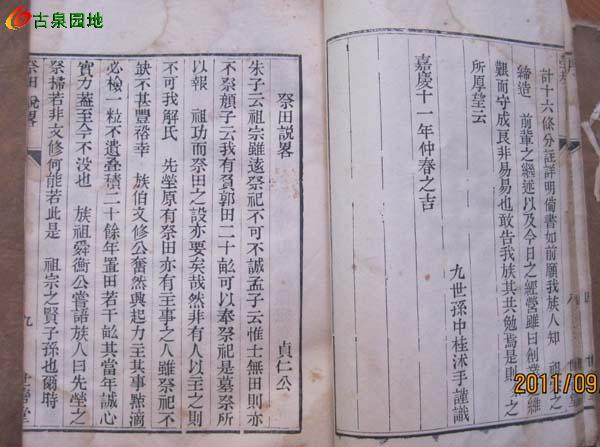 古泉园地
計十六條分註詳明備書如前願我族人知　祖宗之
締造　前輩之繼述以及今日之經營雖曰創業維
艱而守成良非易易也敢告我族其共勉焉是則　之
所厚望云
嘉慶十一年仲春之吉
九世孫中桂沭手謹識
祭田說畧
貞仁公
朱子云祖宗雖遠祭祀不可不誠孟子云惟士無田則亦
不祭顏子云我有負郭田二十畝可以奉祭祀是墓祭所
以報　祖功而祭田之設亦要矣哉然非有人以主之則
不可我解氏　先塋原有祭田亦有主事之人雖祭祀不
缺不甚豐裕幸　族伯文修公奮然興起力主其事點滴
必檢一粒不遺叠積二十餘年置田若干畝其當年誠心
實力蓋至今不没也　族祖舜衡公嘗語族人曰先塋之
祭掃若非文修何能若此是　祖宗之賢子孫也爾時
祭田說畧
九
2011/09